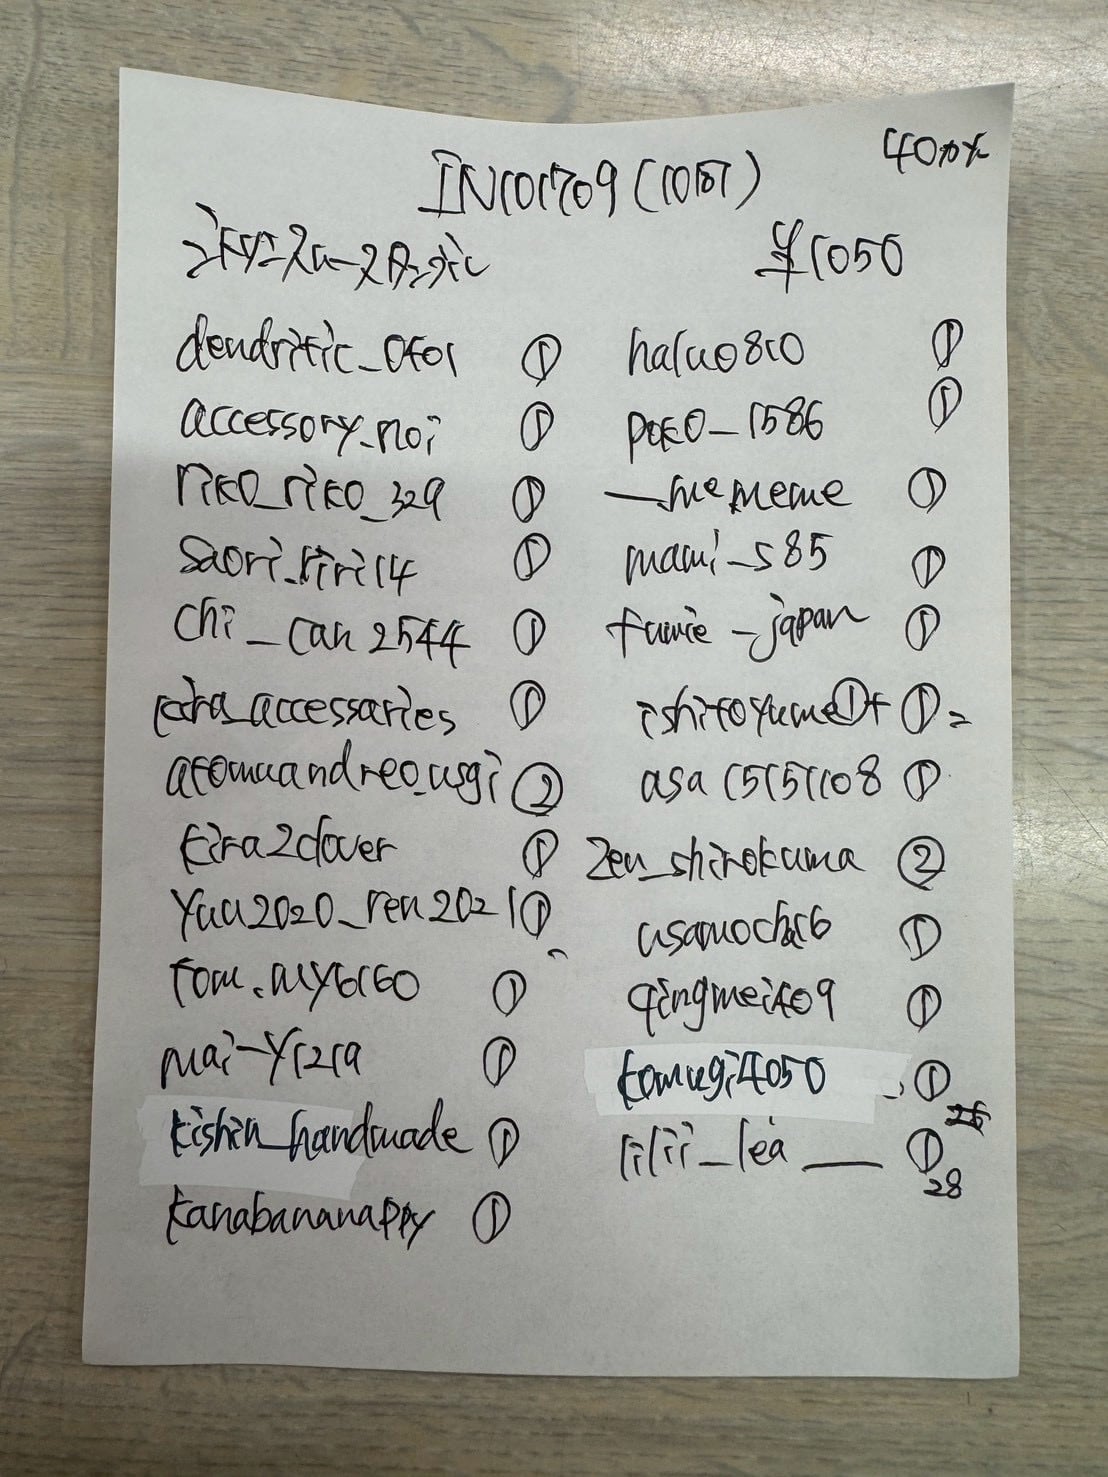 IN101709(108町)
¥1050
dendritic_0401 ①
accessory_noi ①
riko_riko_329 ①
saori.riri14 ①
chi_can2544 ①
kira_accessaries ①
atomuandreo_usgi ②
kira2clover ①
yuu2020_ren2021 ①
tom.my6160 ①
mai-y1219 ①
kishin_handmade ①
kanabananappy ①
haluo810 ①
poko_1586 ①
__mememe ①
mami_s85 ①
fumie_japan ①
ishitoyume①+①=
asa15151108 ①
zen_shirokuma ②
usamocha16 ①
qingmei409 ①
komugi4050 ①
lilii_lea___ ①
28